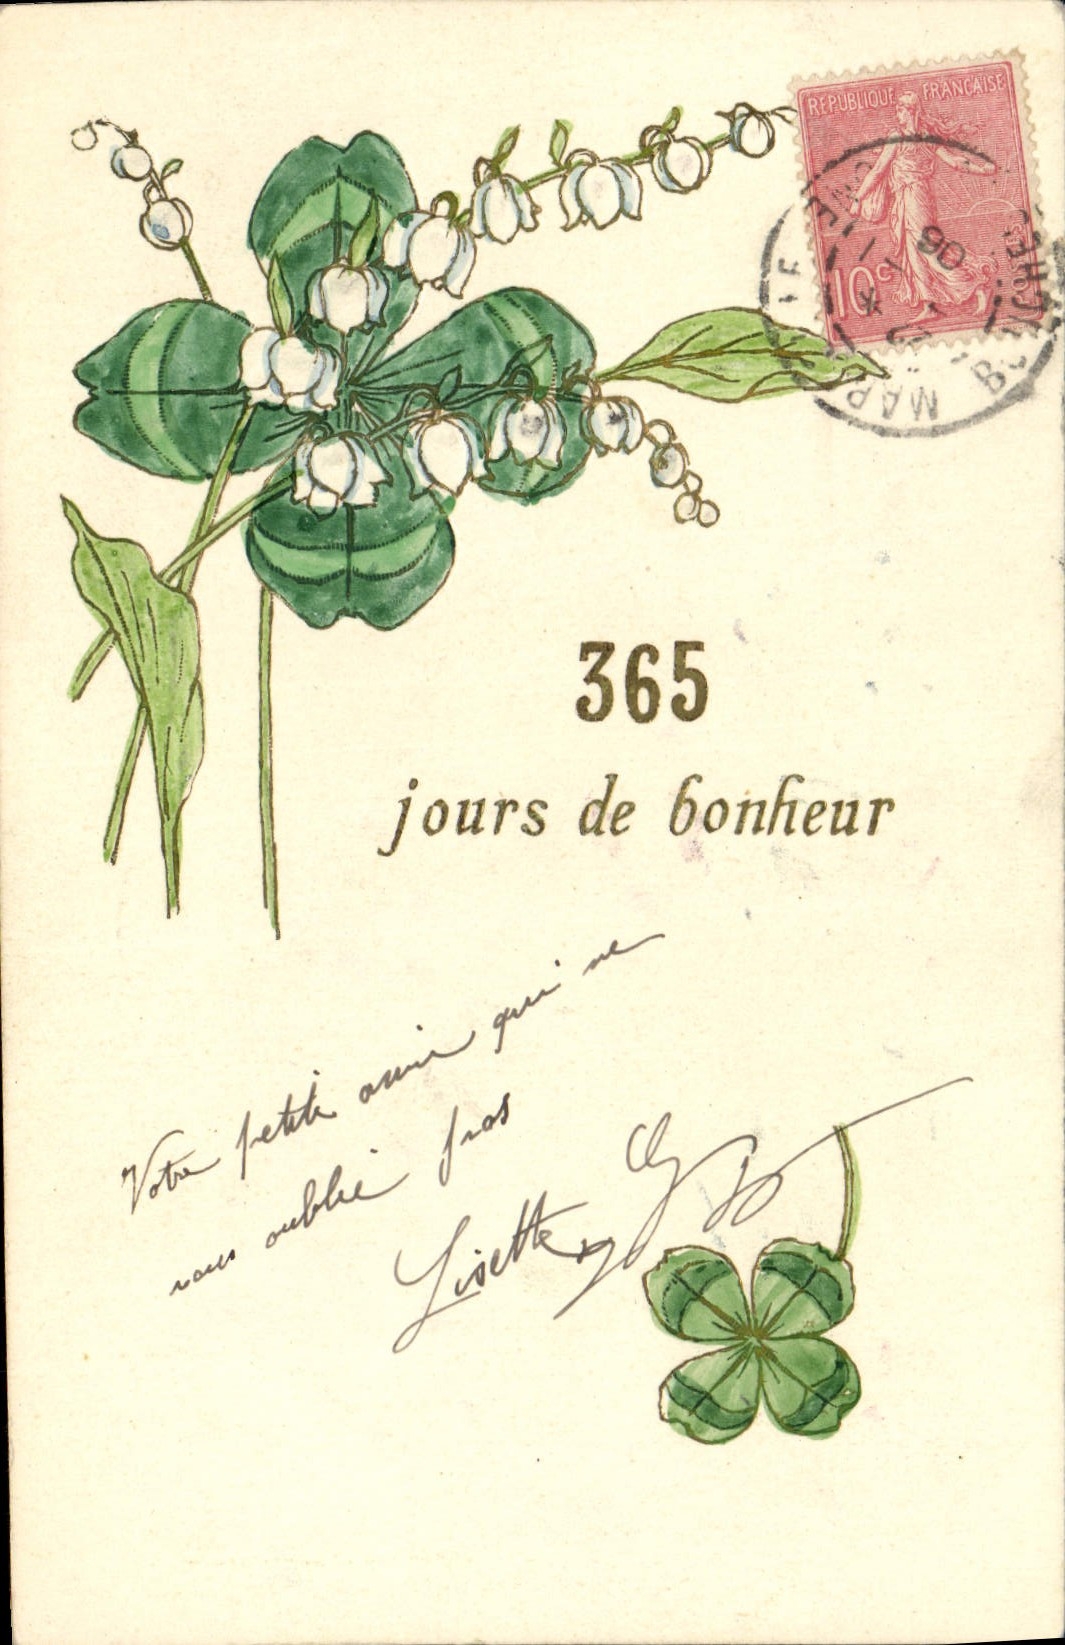 REPUBLIQUE FRANÇAISE
10c
06
365
jours de bonheur
Votre petite amie qui ne
vous oublie pas
Lisette